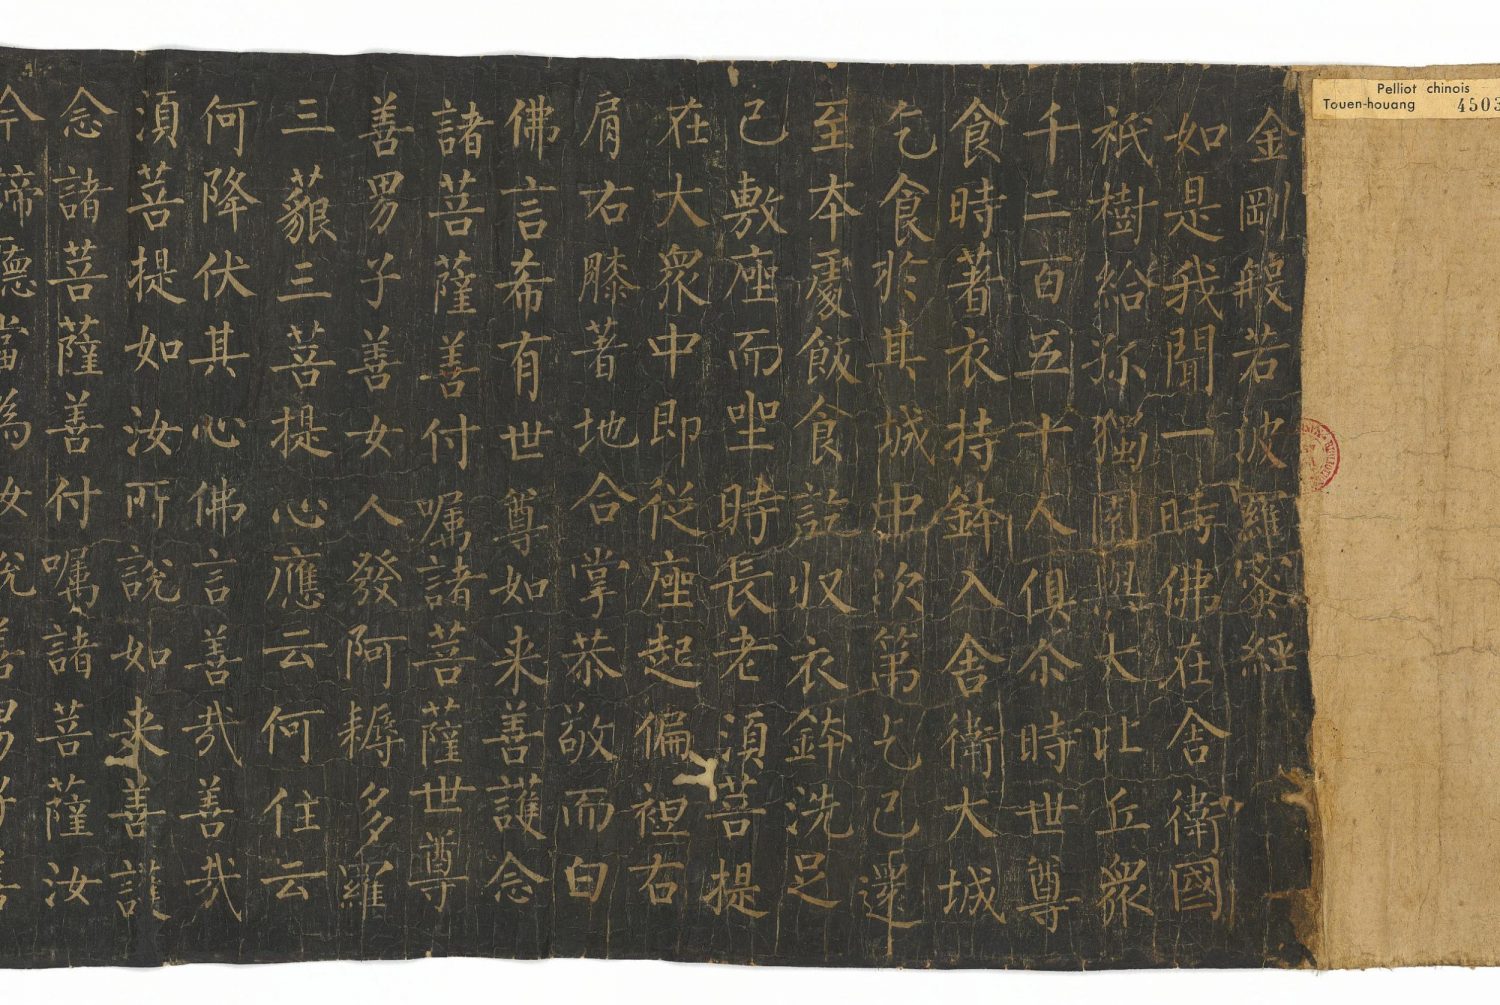 Pelliot chinois
Touen-houang 4503
金剛般若波羅蜜經
如是我聞一時佛在舍衛國
祇樹給孤獨園與大比丘衆
千二百五十人俱尒時世尊
食時著衣持鉢入舍衛大城
乞食於其城中次第乞已還
至本處飯食訖収衣鉢洗足
已敷座而坐時長老湏菩提
在大衆中即從座起偏袒右
肩右膝著地合掌恭敬而白
佛言希有世尊如来善護念
諸菩薩善付嘱諸菩薩世尊
善男子善女人發阿耨多羅
三藐三菩提心應云何住云
何降伏其心佛言善哉善哉
湏菩提如汝所說如来善護
念諸菩薩善付嘱諸菩薩汝
今諦聽當為汝說善男子善